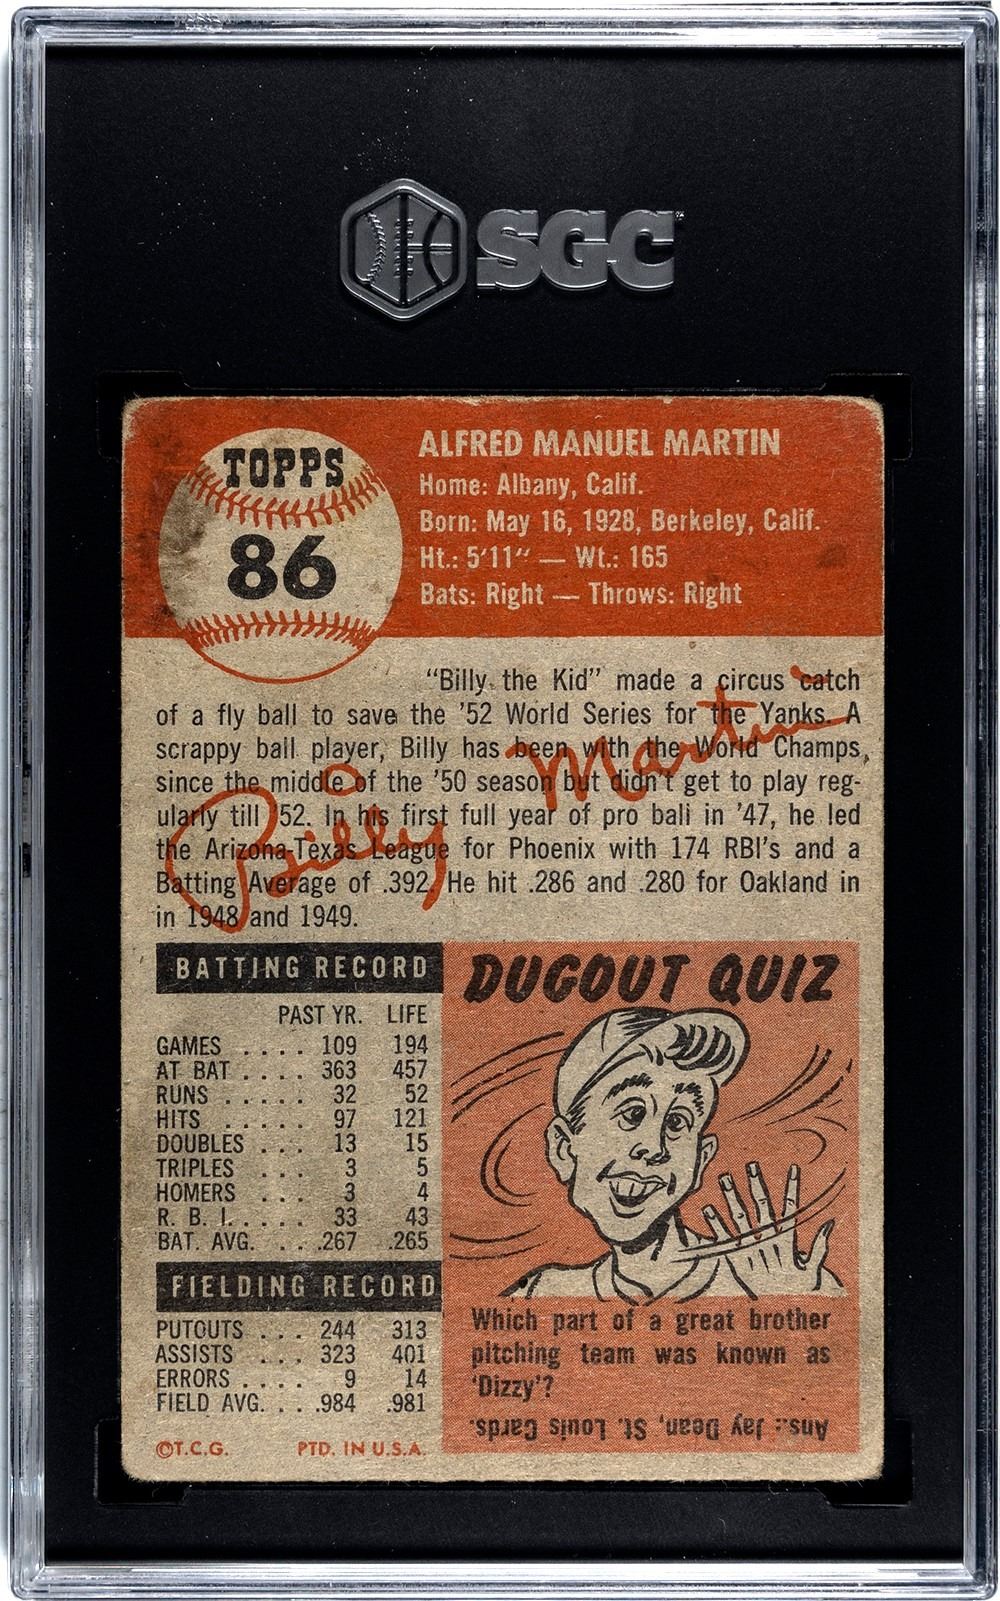 SGC
TOPPS
86
ALFRED MANUEL MARTIN
Home: Albany, Calif.
Born: May 16, 1928, Berkeley, Calif.
Ht.: 5'11" — Wt.: 165
Bats: Right — Throws: Right
"Billy the Kid" made a circus catch
of a fly ball to save the '52 World Series for the Yanks. A
scrappy ball player, Billy has been with the World Champs,
since the middle of the '50 season but didn't get to play reg-
ularly till '52. In his first full year of pro ball in '47, he led
the Arizona-Texas League for Phoenix with 174 RBI's and a
Batting Average of .392. He hit .286 and .280 for Oakland in
in 1948 and 1949.
Billy Martin
BATTING RECORD
PAST YR. LIFE
GAMES .... 109 194
AT BAT .... 363 457
RUNS ..... 32 52
HITS ..... 97 121
DOUBLES ... 13 15
TRIPLES ... 3 5
HOMERS ... 3 4
R. B. I. .... 33 43
BAT. AVG. ... .267 .265
FIELDING RECORD
PUTOUTS ... 244 313
ASSISTS ... 323 401
ERRORS .... 9 14
FIELD AVG. ... .984 .981
©T.C.G. PTD. IN U.S.A.
DUGOUT QUIZ
Which part of a great brother
pitching team was known as
'Dizzy'?
Ans.: Jay Dean, St. Louis Cards.